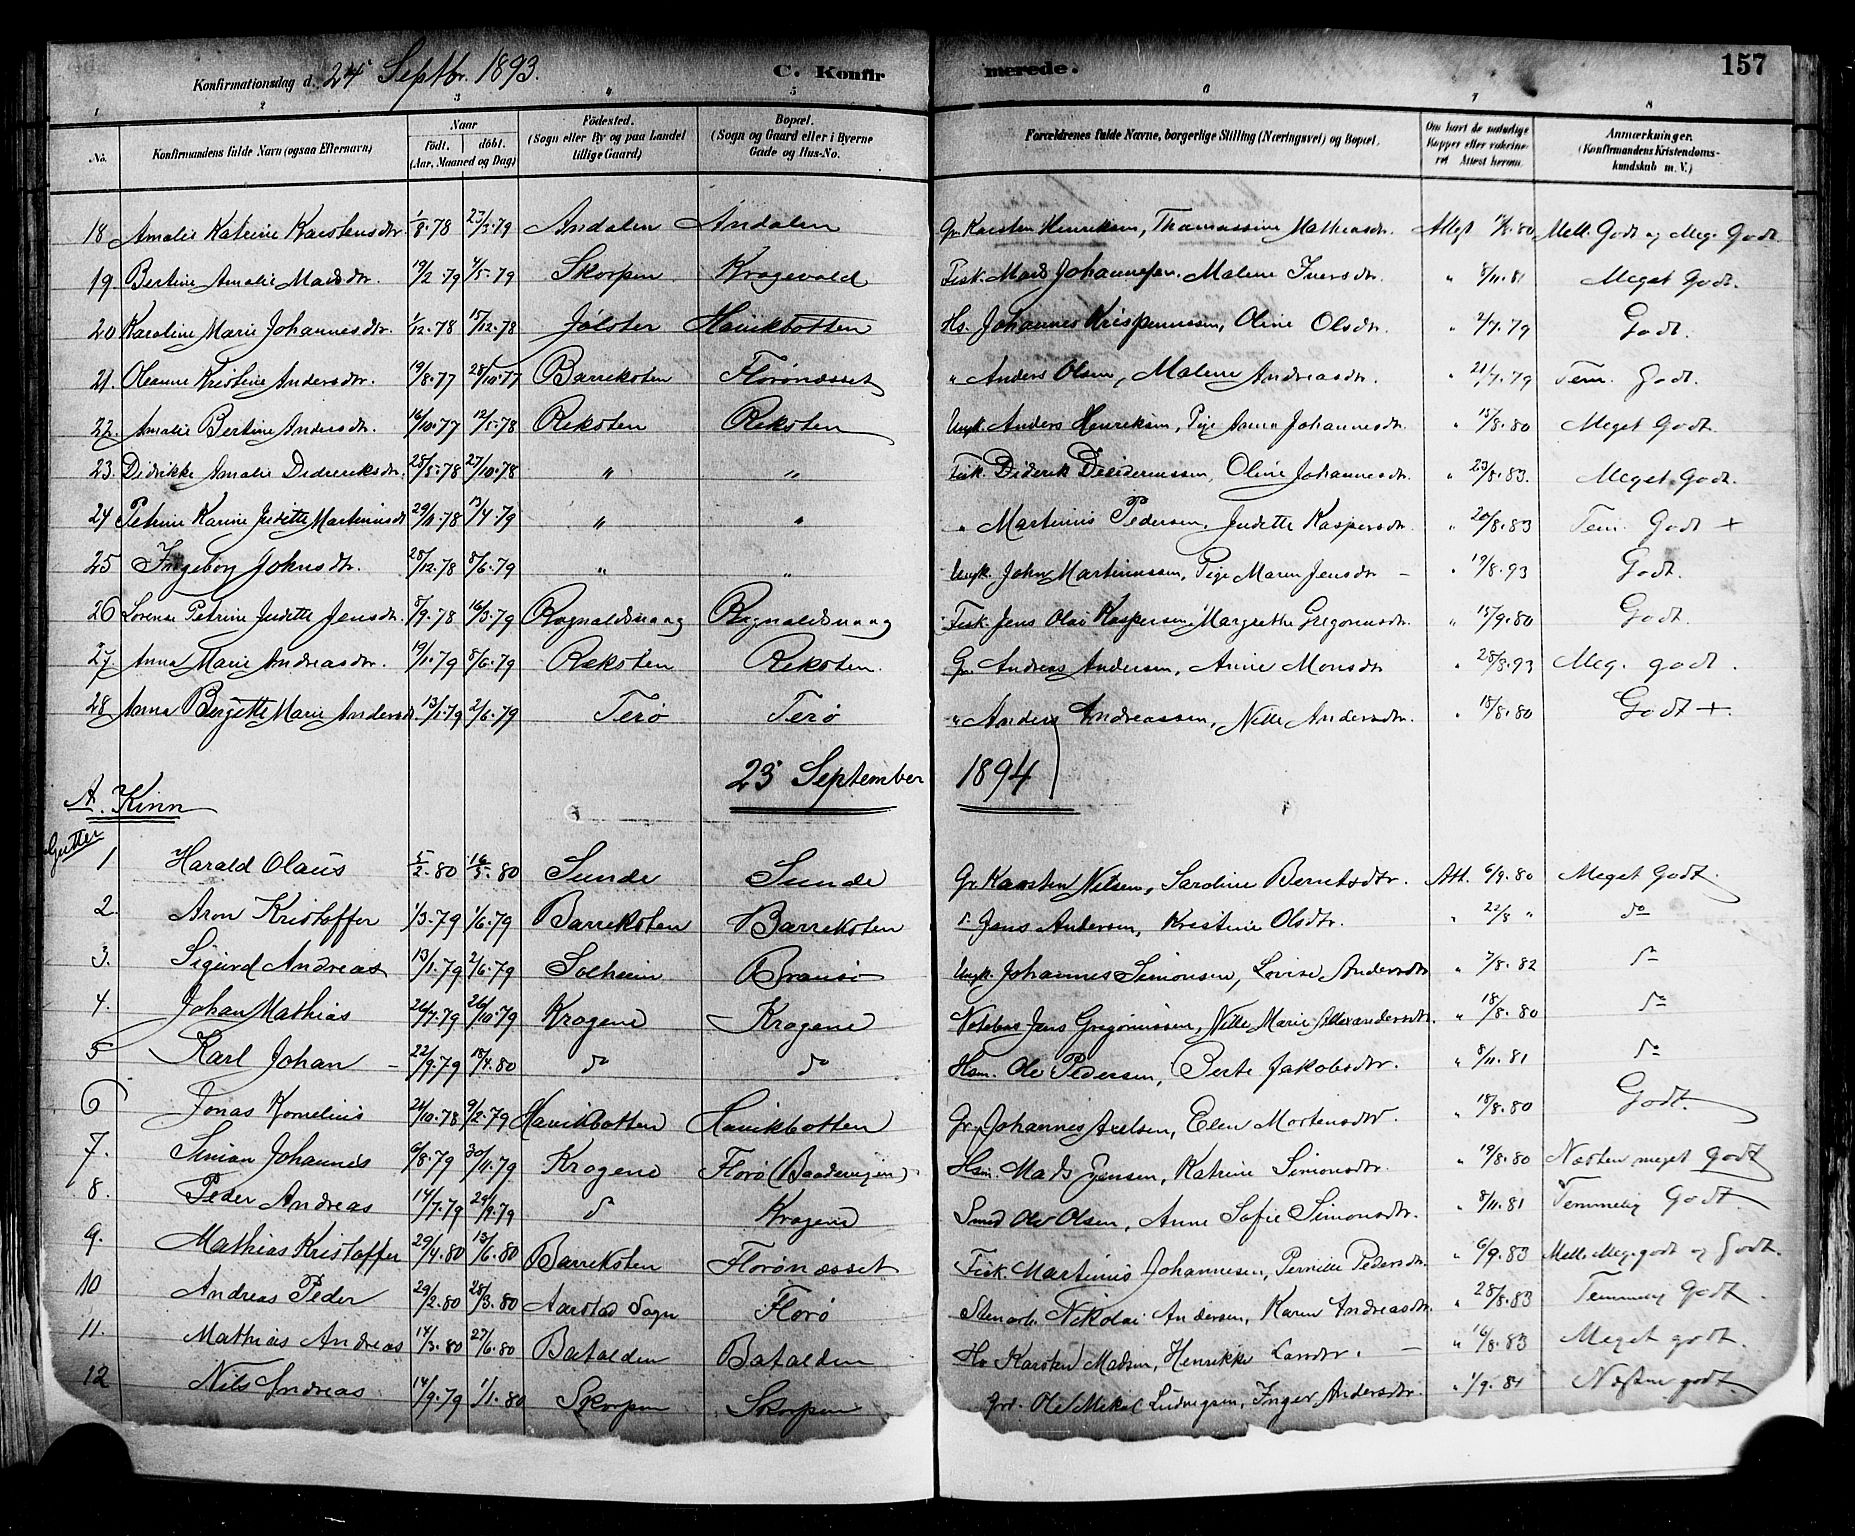 Konfirmationsdag d. 24 Septbr. 1893. C. Konfirmerede. 157
1 2 3 4 5 6 7 8
No. Konfirmandens fulde Navn (ogsaa Efternavn) Naar födt. döbt. (Aar, Maaned og Dag) Födested. (Sogn eller By og paa Landet tillige Gaard) Bopæl. (Sogn og Gaard eller i Byerne Gade og Hus-No. Forældrenes fulde Navne, borgerlige Stilling (Næringsvei) og Bopæl. Om havt de naturlige Kopper eller vakcineret. Attest herom. Anmærkninger. (Konfirmandens Kristendomskundskab m. V.)
18 Amalie Katrine Karstensdtr. 1/8.78 23/3.79 Andalen Andalen Gr. Karsten Henriksen, Thomassine Mathiasdtr. Attest 80 Mell. Godt og Meg. Godt.
19. Bertine Amalie Madsdtr. 19/2.79 4/5.79 Skorpen Kragevald Fisk. Mads Johannesen, Malene Iversdtr. " 8/11.81 Meget Godt.
20 Karoline Marie Johannesdtr. 1/12.78 15/12.78 Jölster Havikbotten Hs. Johannes Krispinussen, Oline Olsdtr. " 2/7.79 Godt.
21. Oleanne Kristine Andersdtr. 19/8.77 28/10.77 Barrekoten Florönæsset " Anders Olsen, Malene Andreasdtr. " 21/7.79 Tem. Godt.
22. Amalie Bertine Andersdtr. 16/10.77 12/5.78 Reksten Reksten Ungk. Anders Henriksen, Pige Anna Johannesdtr. " 15/8.80 Meget Godt.
23. Didrikke Amalie Didriksdtr. 25/8.78 27/10.78 " " Fisk. Diderik Oline Johannesdtr. " 23/8.83. Meget Godt.
24 Petrine Karine Judette Martinusdt 29/11.78 13/4.79 " " " Martinus Pedersen, Judette Kaspersdtr. " 20/8.83 Tem. Godt +
25 Ingeborg Johnsdtr. 28/12.78 8/6.79 " " Ungk. John Martinussen, Pige Maren Jensdtr – " 19/8.93 Godt.
26 Lorense Petrine Judette Jensdtr. 8/9.78 16/3.79 Rognaldsvaag Rognaldsvaag Fisk. Jens Olai Kaspersen, Margrethe Gregoriusdtr. " 15/9.80 Godt.
27. Anna Marie Andreasdtr. 19/1.79 8/6.79 Ræksten Reksten. Gr. Andreas Andersen, Anne Monsdtr " 28/8.93 Meg. godt.
28 Anna Bergette Marie Andersdtr. 13/1.79 2/6.79 Terö Terö " Anders Andreassen, Nille Andersdtr. " 15/8.80 Godt +.
23 September 1894
A. Kinn
Gutter
1 Harald Olaus 5/2.80 16/5.80 Sunde Sunde Gr. Karsten Nilsen, Saroline Berntsdtr. Att. 6/9.80 Meget Godt.
2. Aron Kristoffer 1/3.79 1/6.79 Barrekoten Barrekoten Jens Andersen, Kristine Olsdtr. " 22/8 " do
3. Sigurd Andreas 13/1.79 2/6.79 Solheim Bransö Ungk. Johannes Simonsen, Lovise Andersdtr " 7/8.82 do
4. Johan Mathias 26/7.79 26/10.79 Kragene Kragene Notebas Jens Gregoriussen, Nille Marie Alexandersdtr. " 18/8.80 do
5 Karl Johan – 22/9.79 18/4.80 do do Hsm. Ole Pedersen, Berte Jakobsdtr. " 8/11.81 do
6 Jonas Kornelius 21/10.78 9/2.79 Havikbotten Havikbotten Gr. Johannes Axelsen, Elen Mortensdtr. " 18/8.80 Godt.
7. Simon Johannes 6/8.79 30/11.79 Kragene Florö (Baadevigen) Hsm. Mads Jensen, Katrine Simonsdtr. " 19/8.80 Næsten meget Godt
8. Peder Andreas 14/7.79 21/9.79 do Kragene Smed Ole Olsen, Anne Sofie Simonsdtr. " 8/11.81 Temmelig Godt
9. Mathias Kristoffer 29/4.80 13/6.80 Barreksten Florönæsset Fisk. Martinus Johannesen, Pernille Pedersdtr " 6/9.83 Mell. Meg. godt og Godt.
10 Andreas Peder 29/2.80 28/3.80 Aarstad Sogn Florö Stenarb. Nikolai Andersen, Karen Andreasdtr. " 28/8.83 Temmelig Godt.
11. Mathias Andreas 14/3.80 27/6.80 Batalden Batalden Hs Karsten Madsen, Henrikke Larsdtr. – " 16/8.83 Meget godt.
12 Nils Andreas 14/9.79 1/1.80 Skorpen Skorpen Grd. Ole Mikal Ludvigsen, Inger Andersdtr. " 1/9.81 Næsten godt.